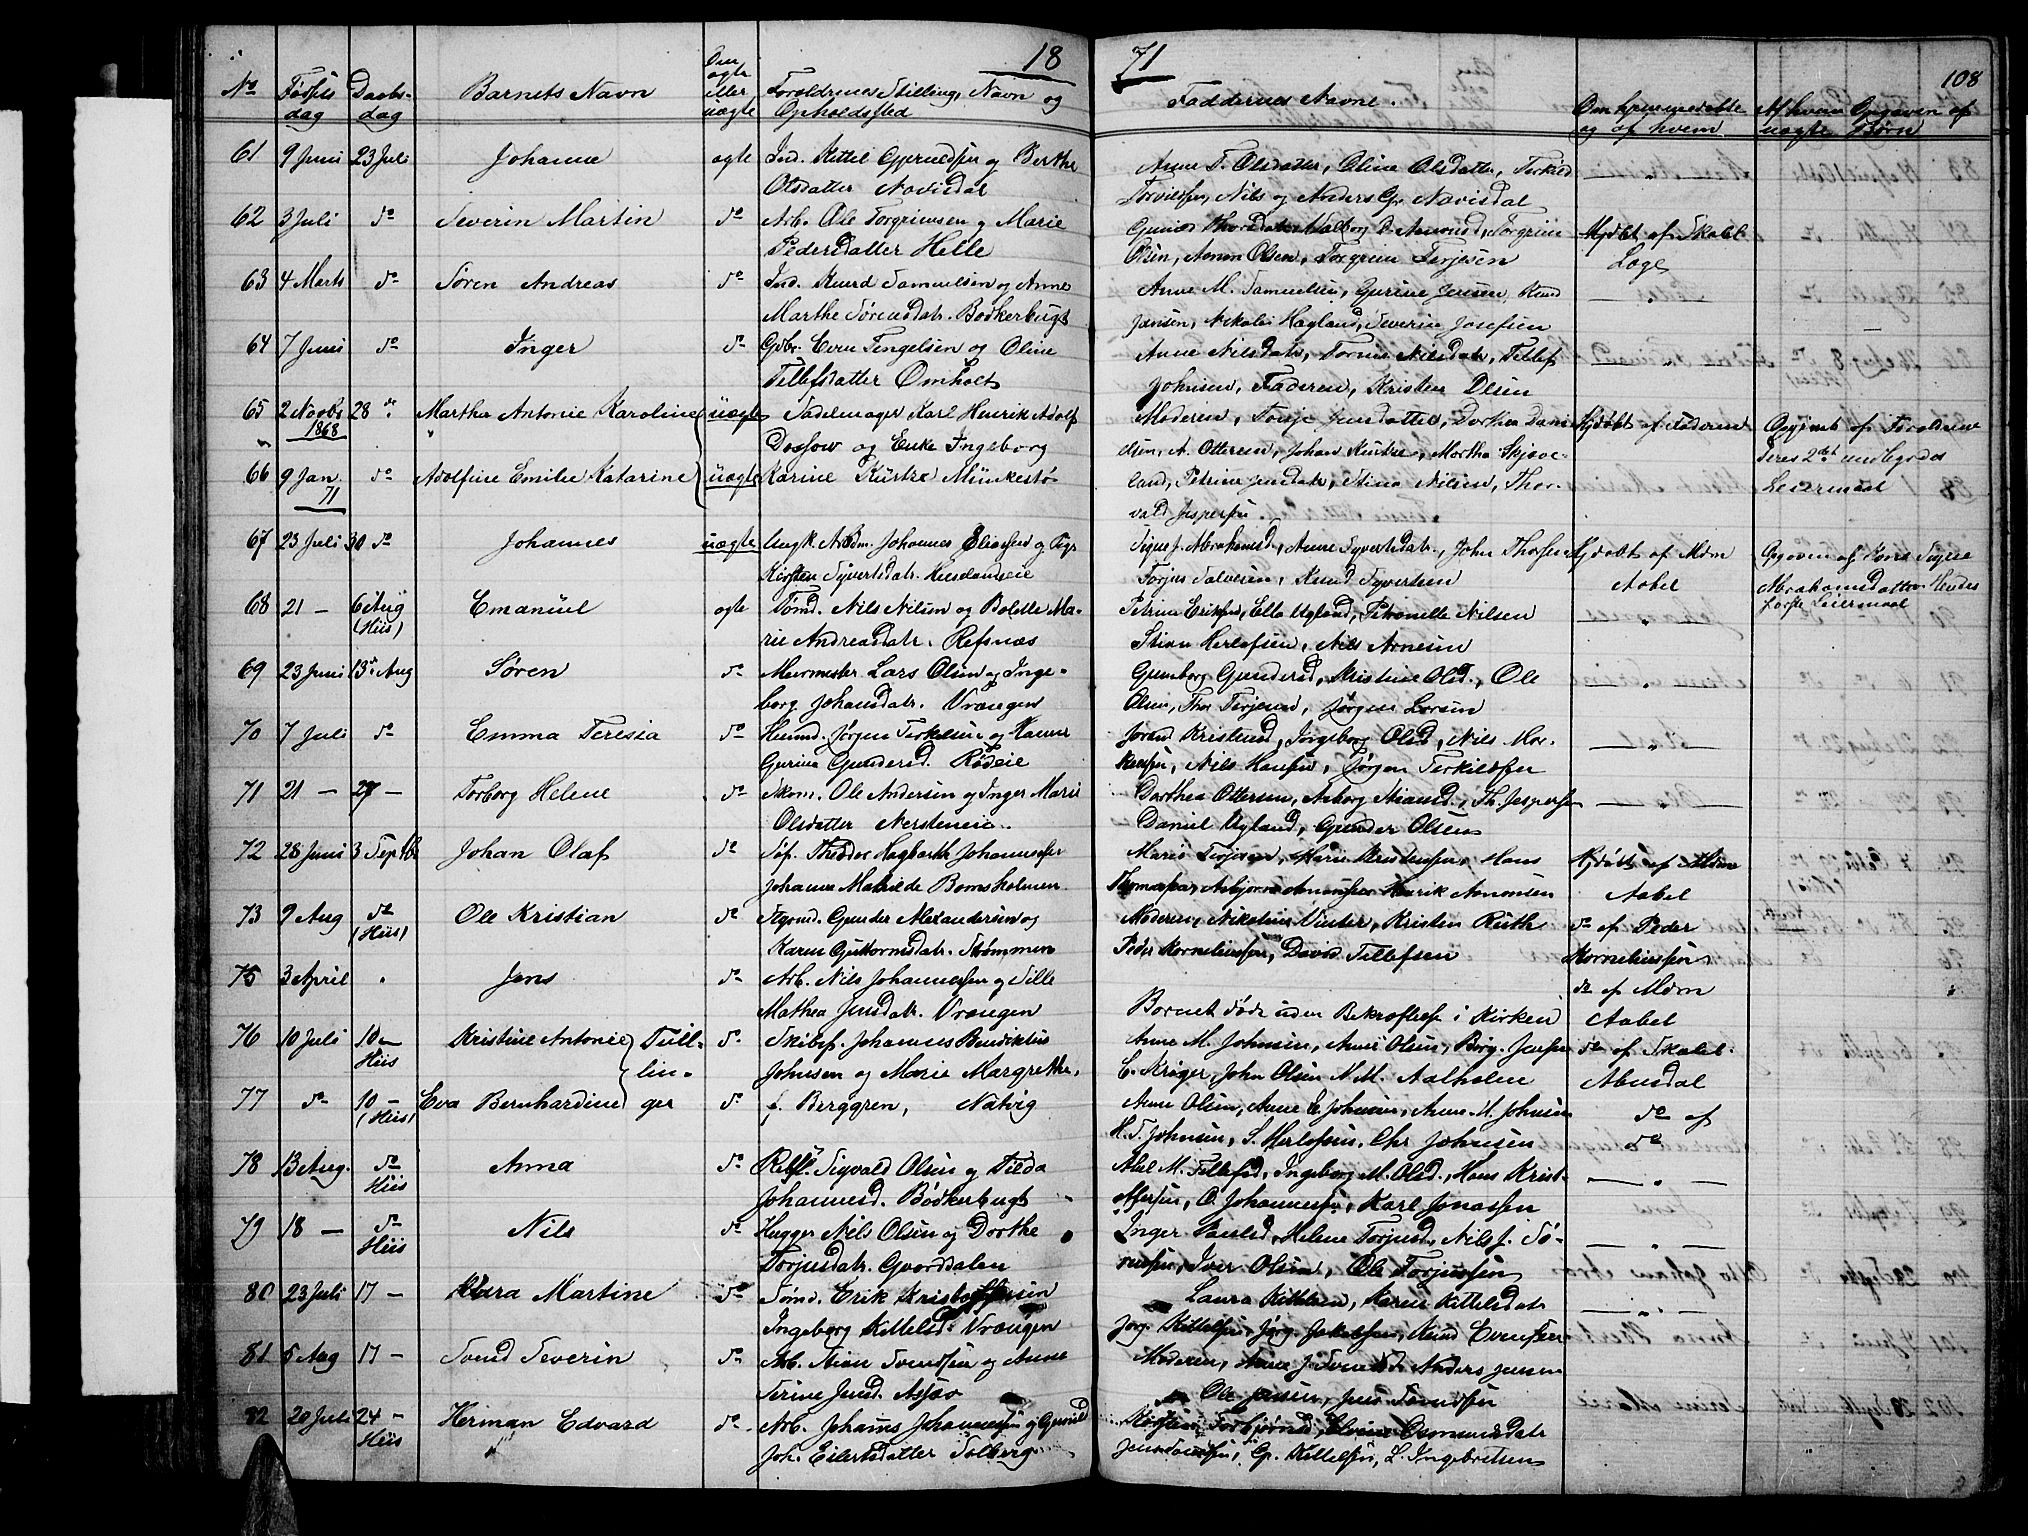 18 71
108
No Fødsels dag Daabs- dag Barnets Navn Om ægte eller uægte Forældrenes Stilling, Navn og Opholdssted
Faddernes Navne.
Om hjemmedøbte og af hvem
Af hvem Opgaven af uægte Børn
61 9 Juni 23 Juli Johanne ægte Ind. Kettil og Berthe
Olsdatter Navisdal
Anne T. Olsdatter, Oline Olsdatter, Terkild
Nils og Anders Navisdal
62 3 Juli do Severin Martin do Arb. Ole Torgrimsen og Marie
Pedersdatter Helle
Torgrim
Olsen, Amon Olsen, Torgrim Terjesen
Hjdøbt af Skolel.
Løge
63 4 Marts do Søren Andreas do Ind. Knud Samuelsen og Anne
Marthe Sørensdatr. Bødkerbugt
Anne M. Samuelsen, Gurine Jensen, Knud
Jansen, Nikolai Hagland, Severin Josefsen
64 7 Juni do Inger do Gdbr. Even Tengelsen og Oline
Tellefsdatter Omholt
Anne Nilsdatr, Nilsdatr, Tellef
Johnsen, Faderen, Kristen Olsen
65 2 Novbr 1868 28 do Martha Antonie Karoline uægte Sadelmager Karl Henrik Adolf
Dossow og Enke Ingeborg
Moderen, Jensdatter, Dorthea Dani-
elsen, A. Ottersen, Johan Küstre, Martha Skjæve-
Hjdøbt af Faderen
Opgivet af Forældrene
Deres 2det undlagte
66 9 Jan. 71 do Adolfine Emilie Katarine uægte Karine Küstre Munkestø
land, Petrine Jensdatr, Stina Nilsen, Thor-
vald Jespersen
Leiermaal
67 23 Juli 30 do Johannes uægte Ungk. Johannes Eliassen og Pige
Kirsten Syvertsdatr.
Abrahamsd, Anne Syvertsdatr., John
Torjus Salvesen, Knud Syvertsen
Hjdøbt af Mdm
Aabel
Opgaven af
Abrahamsdatter Hendes
første Leiermaal
68 21 — 6 Aug (Hiis) Emanuel ægte Tømd. Nils Nilsen og Bolette Ma-
rie Andreasdatr. Refsnæs
Petrine Eriksen, Ella Ugland, Petronelle Nilsen
Stian Herlofsen, Nils Arnesen
69 23 Juni 13 Aug Søren do Murmester Lars Olsen og Inge-
borg Johansdatr. Vrængen
Gunborg Gundersd, Kristine Olsd., Ole
Olsen, Thor Terjesen, Jørgen Larsen
70 7 Juli do Emma Teresia do Huusmd. Jørgen Terkelsen og Hanne
Gurine Gundersd. Rødeie
Kristensd, Ingeborg Olsd, Nils
Nils Hansen, Jørgen Terkildsen
71 21 — 27 — Torborg Helene do Skom. Ole Andersen og Inger Marie
Olsdatter Nersteneie
Dorthea Ottersen, Aaborg Th. Jespersen
Daniel Ugland, Gunder Olsen
72 28 Juni 3 Septbr Johan Olaf do Søf. Theodor Hagbarth Johannesen
Johanne Mathilde Bomsholmen
Marie Terjesen, Marie Kristensen, Hans
Thomassen, Asbjørn Amonsen Henrik Amonsen
Hjdøbt af Mdm
Aabel
73 9 Aug do (Hiis) Ole Kristian do Gunder Alexandersen og
Karen Guttormsdatr. Strømmen
Moderen, Nikoline Vinter, Kristen Ruth
Peder Korneliussen, David Tellefsen
do af Peder
Korneliussen
75 3 April " Jens do Arb. Nils Johannessen og Tille
Mathea Jensdatr. Vrængen
Barnet døde uden Bekræftelse i Kirken
do af Mdm
Aabel
76 10 Juli 10 — Hiis Kristine Antonie Tvil- do Skibsf. Johannes Benediktus
Johnsen og Marie Margrethe
Anne M. Johnsen, Anne Olsen, Borg.
C. Krøger, John Olsen N. M. Aalholm
do af Skolel.
Abusdal
77 do 10 — (Hiis) Eva Bernhardine lin- ger do f. Berggren, Natvig
Anne Olsen, Anne E. Johnsen, Anne M. Johnsen
H. T. Johnsen, S. Herlofsen, Chr Johnsen
do af
do
78 13 Aug. do Hiis Anna do Sigvald Olsen og Tilda
Johannesd. Bødkerbugt
Abel M. Tellefsd, Ingeborg M. Olsd., Hans Krist-
offersen, O. Johannesen, Karl Jonassen
79 18 — do Hiis Nils do Hugger Nils Olsen og Dorthe
Torjusdatr. Gvorddalen
Inger Helene Torjusd, Nils J. Sø-
rensen, Iver Olsen, Ole Torjussen
80 23 Juli 17 — Klara Martine do Tømd. Erik Kristoffersen
Ingeborg Kittelsd. Vrængen
Laura Kittelsen, Karen Kittelsdatr
Jørg. Kittelsen, Jørg. Jakobsen, Knud Evensen
81 5 Aug 17 — Svend Severin do Arb. Stian Svendsen og Anne
Serine Jensd. Assæv
Moderen, Anne J. Svendsd. Anders Jensen
Ole Jensen, Jens Svendsen
82 20 Juli 24 — Hiis Herman Edvard do Arb. Johans Johannessen og Gunild
Joh. Eilertsdatter Solberg
Torbjørnsd, Elvine Osmundsdatr
G. Kittelsen, L. Ingebretsen